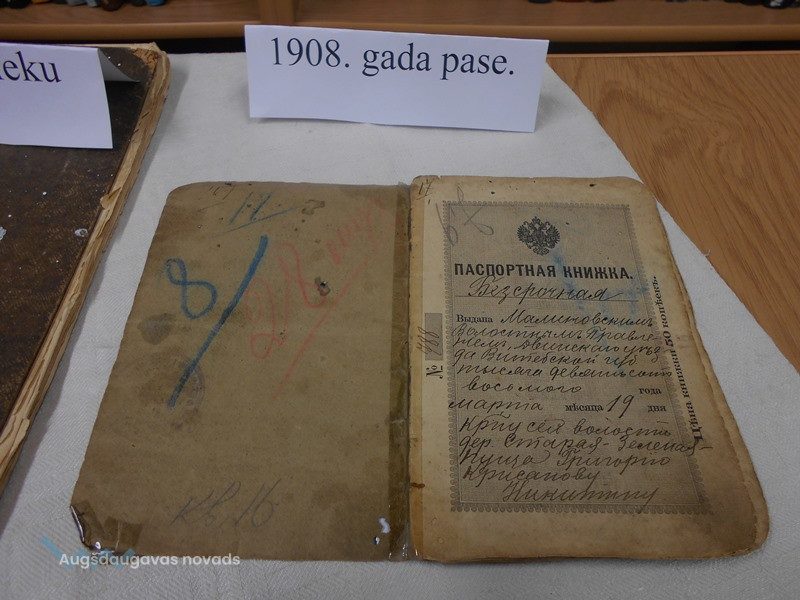 ieku
1908. gada pase.
17
8/
кв. 16
17
68
ПАСПОРТНАЯ КНИЖКА.
Безсрочная
Выдана Малиновскимъ
волостнымъ Правле-
ніемъ, Двинскаго уѣз-
да Витебской губ
тысяча девятьсотъ
восьмого года
марта мѣсяца 19 дня
кр-ну сей волости
дер Старая-Зеленая-
Пуща Григорію
Крисанову
Никитину
№ 488
Цѣна книжки 50 копѣекъ.
Augšdaugavas novads